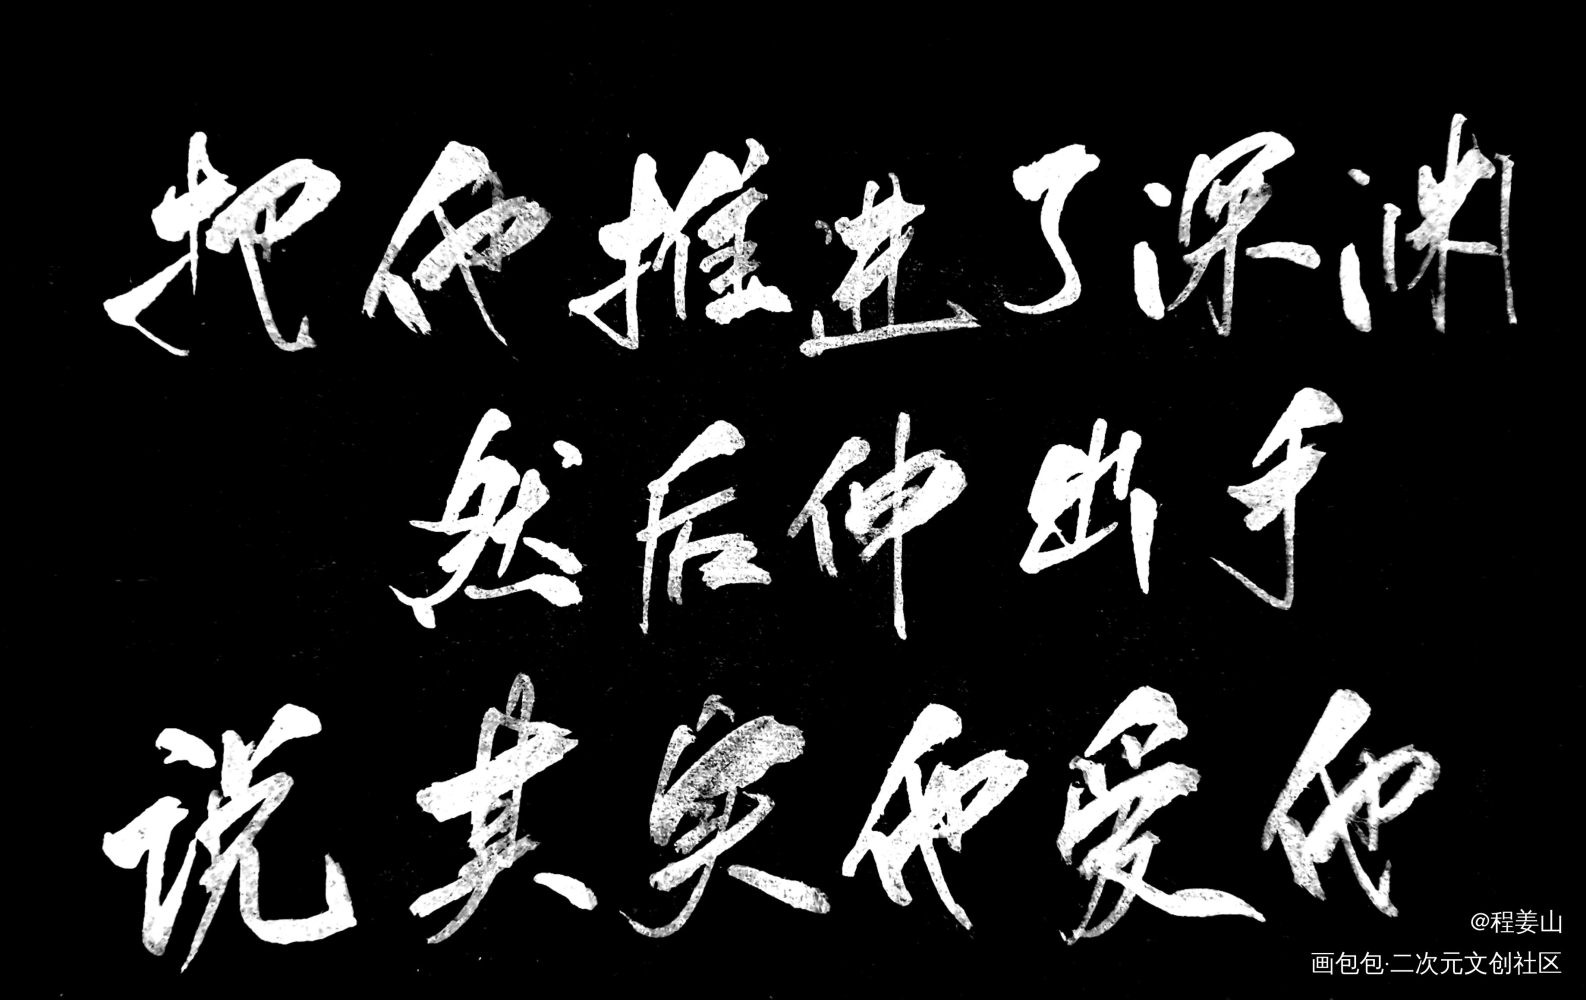 把他推进了深渊
然后伸出手
说其实他爱他
@程姜山
画包包·二次元文创社区